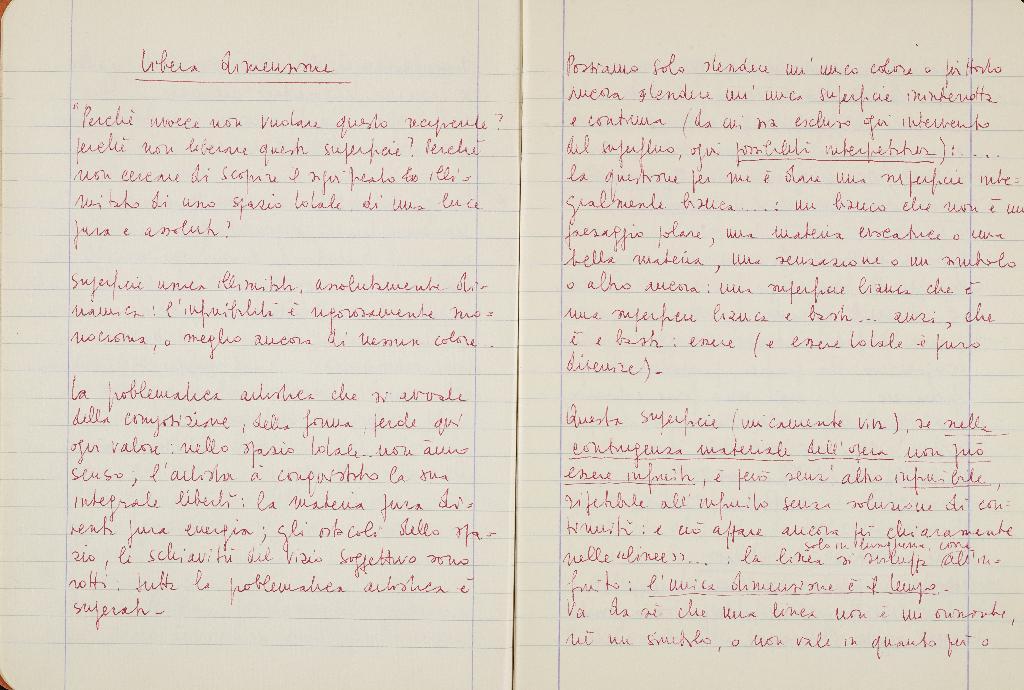 libera dimensione
"Perchè invece non vuotare questo recipiente?
perchè non liberare questa superficie? Perchè
non cercare di scoprire il significato illi-
mitato di uno spazio totale. di una luce
pura e assoluta?
Superficie unica illimitata, assolutamente di-
namica: l'infinibilità è rigorosamente mo-
nocroma, o meglio ancora di nessun colore.
La problematica artistica che si avvale
della composizione, della forma, perde qui
ogni valore: nello spazio totale non ànno
senso; l'artista à conquistato la sua
integrale libertà: la materia pura di-
venta pura energia; gli ostacoli dello spa-
zio, le schiavitù del vizio soggettivo sono
rotti: tutta la problematica artistica è
superata-
Possiamo solo stendere un'unico colore o piuttosto
ancora stendere un'unica superficie ininterrotta
e continua (da cui sia escluso ogni intervento
del superfluo, ogni possibilità interpretativa): ....
la questione per me è dare una superficie inte-
gralmente bianca....: un bianco che non è un
paesaggio polare, una materia evocatrice o una
bella materia, una sensazione o un simbolo
o altro ancora: una superficie bianca che è
una superficie bianca e basta... anzi, che
è e basta: essere (e essere totale è puro
divenire)-
Questa superficie (unicamente viva), se nella
contingenza materiale dell'opera non può
essere infinita, è però senz'altro infinibile,
ripetibile all'infinito senza soluzione di con-
tinuità: e ciò appare ancora più chiaramente
nelle «linee»....: la linea si sviluppa solo in lunghezza, corre all'in-
finito: l'unica dimensione è il tempo-
Va da sè che una linea non è un orizzonte,
nè un simbolo, e non vale in quanto più o